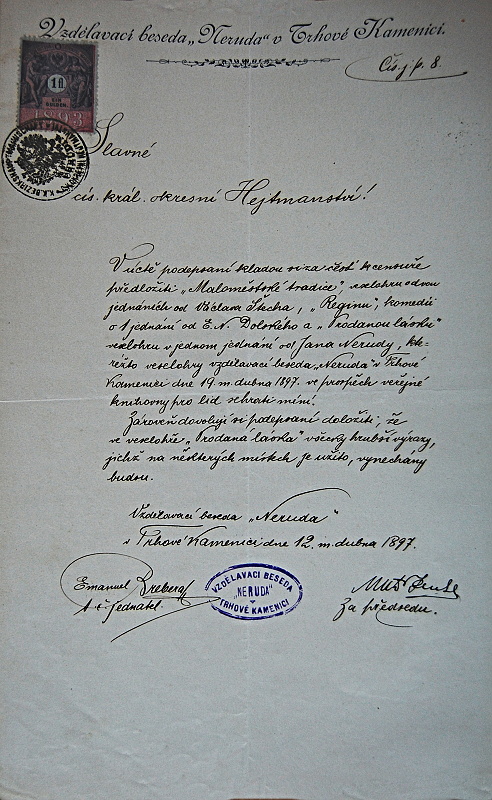 Vzdělavací beseda „Neruda“ v Trhové Kamenici.
Čís. j. p. 8.
1 fl
EIN
GULDEN
1893
Slavné
cís. král. okresní Hejtmanství!
V úctě podepsaní kladou si za čest k censuře
předložiti „Maloměstské tradice“, veselohru o dvou
jednáních od Václava Štecha, „Reginu“, komedii
o 1 jednání od E. N. Dolského a „Prodanou lásku“
veselohru v jednom jednání od Jana Nerudy, kte-
réžto veselohry vzdělavací beseda „Neruda“ v Trhové
Kamenici dne 19. m. dubna 1897. ve prospěch veřejné
knihovny pro lid sehrati míní.
Zároveň dovolují si podepsaní doložiti, že
ve veselohře „Prodaná láska“ všecky hrubší výrazy,
jichž na některých místech je užito, vynechány
budou.
Vzdělavací beseda „Neruda“
v Trhové Kamenici dne 12. m. dubna 1897.
Emanuel
t. č. jednatel.
VZDĚLAVACI BESEDA
„NERUDA“
TRHOVÉ KAMENICI
Za předsedu.